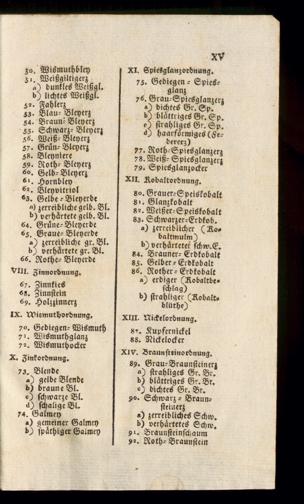 XV
50. Wismuthbley
51. Weißgiltigerz
a) dunkles Weißgl.
b) lichtes Weißgl.
52. Fahlerz
53. Blau-Bleyerz
54. Braun-Bleyerz
55. Schwarz-Bleyerz
56. Weiß-Bleyerz
57. Grün-Bleyerz
58. Bleyniere
59. Roth-Bleyerz
60. Gelb-Bleyerz
61. Hornbley
62. Bleyvitriol
63. Gelbe-Bleyerde
a) zerreibliche gelb. Bl.
b) verhärtete gelb. Bl.
64. Grüne-Bleyerde
65. Graue-Bleyerde
a) zerreibliche gr. Bl.
b) verhärtete gr. Bl.
66. Rothe-Bleyerde
VIII. Zinnordnung.
67. Zinnkies
68. Zinnstein
69. Holzzinnerz
IX. Wismuthordnung.
70. Gediegen-Wismuth
71. Wismuthglanz
72. Wismuthocker
X. Zinkordnung.
73. Blende
a) gelbe Blende
b) braune Bl.
c) schwarze Bl.
d) schalige Bl.
74. Galmey
a) gemeiner Galmey
b) späthiger Galmey
XI. Spiesglanzordnung.
75. Gediegen-Spies-
glanz
76. Grau-Spiesglanzerz
a) dichtes Gr. Sp.
b) blättriges Gr. Sp.
c) strahliges Gr. Sp.
d) haarförmiges (Fe-
dererz)
77. Roth-Spiesglanzerz
78. Weiß-Spiesglanzerz
79. Spiesglanzocker
XII. Kobaltordnung.
80. Grauer-Speiskobalt
81. Glanzkobalt
82. Weißer-Speiskobalt
83. Schwarzer-Erdkobalt
a) zerreiblicher (Ko-
baltmulm)
b) verhärteter schw. E.
84. Brauner-Erdkobalt
85. Gelber-Erdkobalt
86. Rother-Erdkobalt
a) erdiger (Kobaltbe-
schlag)
b) strahliger (Kobalt-
blüthe)
XIII. Nickelordnung.
87. Kupfernickel
88. Nickelocker
XIV. Braunsteinordnung.
89. Grau-Braunsteinerz
a) strahliges Gr. Br.
b) blättriges Gr. Br.
c) dichtes Gr. Br.
90. Schwarz-Braun-
steinerz
a) zerreibliches Schw.
b) verhärtetes Schw.
91. Braunsteinschaum
92. Roth-Braunstein